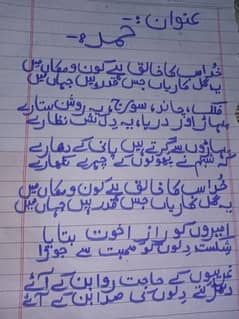 عنوان :-
حمد :-
خدا سب کا خالق ہے کون و مکاں میں
یہ گل کاریاں جس قدر ہیں جہاں میں
فلک، چاند، سورج، یہ روشن ستارے
پہاڑ اور دریا، یہ دلکش نظارے
پہاڑوں سے گرتے ہیں پانی کے دھارے
شبنم نے پھولوں کے چہرے نکھارے
خدا سب کا خالق ہے کون و مکاں میں
یہ گل کاریاں جس قدر ہیں جہاں میں
امیروں کو راز اخوت بتایا
شکستہ دلوں کو محبت سے جوڑا
غریبوں کے حاجت روا بن کے آئے
دلوں کی صدا بن کے آئے